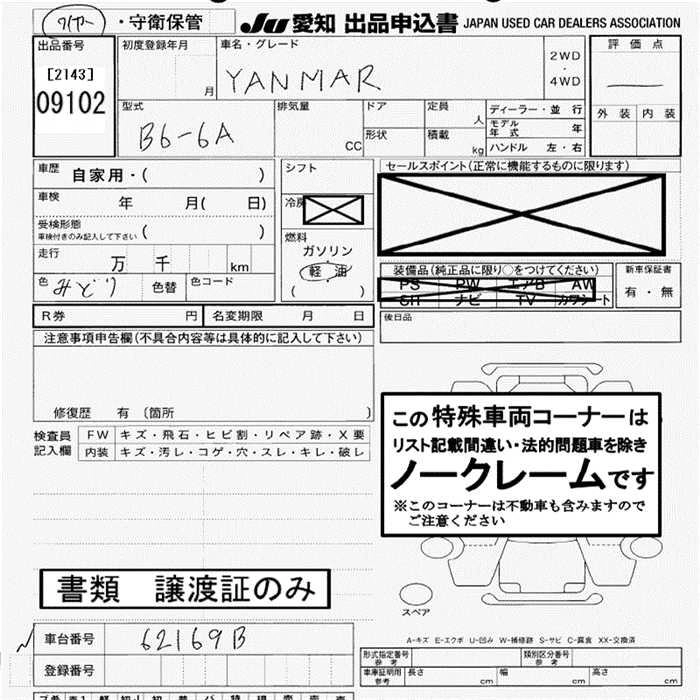 ワイヤー ・守衛保管 JU 愛知 出品申込書 JAPAN USED CAR DEALERS ASSOCIATION
出品番号 初度登録年月 車名・グレード 評価点
[2143] 月 YANMAR 2WD・4WD
09102 外装 内装
型式 排気量 ドア 定員 ディーラー・並行
B6-6A CC 形状 人 モデル年式 年
積載 kg ハンドル 左・右
車歴 自家用・( ) シフト セールスポイント(正常に機能するものに限ります)
車検 年 月( 日) 冷房
受検形態 車検付きのみ記入して下さい ( ) 燃料
走行 万 千 km ガソリン 装備品(純正品に限り○をつけてください) 新車保証書
色 みどり 色替 色コード 軽油 PS PW エアB AW 有・無
( ) SR ナビ TV カワシート
R券 円 名変期限 月 日 後日品
注意事項申告欄(不具合内容等は具体的に記入して下さい)
修復歴 有 〔箇所 〕
検査員記入欄 FW キズ・飛石・ヒビ割・リペア跡・X要
内装 キズ・汚レ・コゲ・穴・スレ・キレ・破レ
この特殊車両コーナーは
リスト記載間違い・法的問題車を除き
ノークレームです
※このコーナーは不動車も含みますので
ご注意ください
書類 譲渡証のみ
スペア
A-キズ E-エクボ U-凹み W-補修跡 S-サビ C-腐食 XX-交換済
車台番号 62169B
登録番号
形式指定番号 参考 類別区分番号 参考
車庫証明用 参考 長さ cm 幅 cm 高さ cm